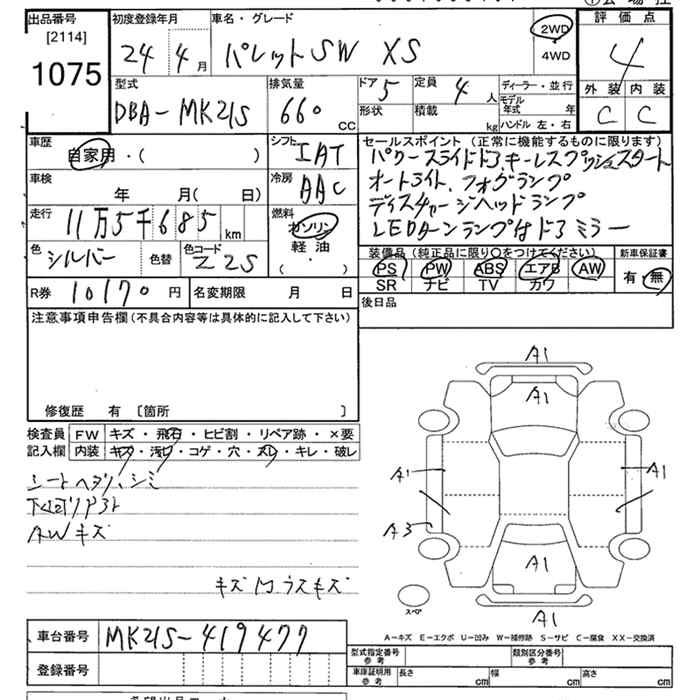 出品番号
[2114]
1075
初度登録年月
24年4月
車名・グレード
パレットSW XS
2WD
4WD
評価点
4
外装 内装
C C
型式
DBA-MK21S
排気量
660
CC
ドア 5
形状
定員 4 人
積載 kg
ディーラー・並行
モデル年式 年
ハンドル 左・右
車歴
自家用・( )
シフト
IAT
車検
年 月( 日)
冷房
AAC
走行
11万5千685 km
燃料
ガソリン
軽油
( ・ )
色
シルバー
色替
色コード
Z2S
R券 10170 円
名変期限 月 日
セールスポイント(正常に機能するものに限ります)
パワースライドドア、キーレスプッシュスタート
オートライト、フォグランプ
ディスチャージヘッドランプ
LEDターンランプ付ドアミラー
装備品(純正品に限り○をつけてください)
PS PW ABS エアB AW
SR ナビ TV カワ
新車保証書
有・無
後日品
注意事項申告欄(不具合内容等は具体的に記入して下さい)
修復歴 有 [箇所 ]
検査員
記入欄
FW キズ・飛石・ヒビ割・リペア跡・×要
内装 キズ・汚レ・コゲ・穴・スレ・キレ・破レ
シートヘタリ、シミ
下回りサビ
AWキズ
キズ
A1
A1
A1
A1
A3
A1
A1
スペア
A-キズ E-エクボ U-凹み W-補修跡 S-サビ C-腐食 XX-交換済
車台番号
MK21S-419477
登録番号
型式指定番号
参考
類別区分番号
参考
車庫証明用
参考
長さ cm
幅 cm
高さ cm